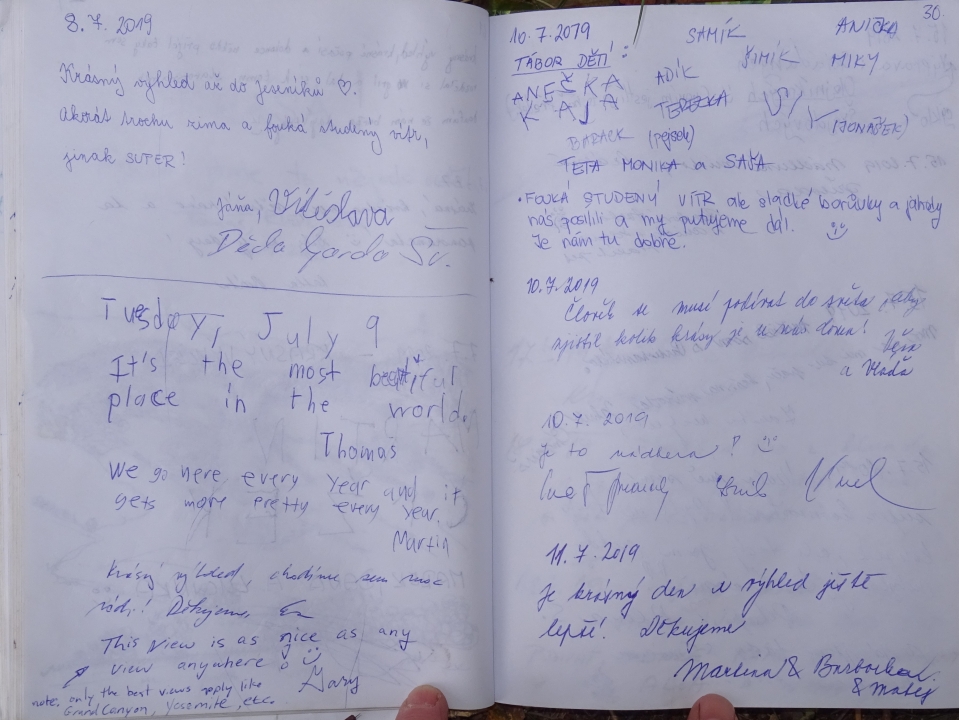 8.7.2019
Krásný výhled až do Jeseníků ♡.
Akorát trochu zima a fouká studený vítr,
jinak SUPER!
Jáňa,
Děda
Tuesday, July 9
It's the most beautiful
place in the world.
Thomas
We go here every year and it
gets more pretty every year.
Martin
Krásný výhled chodíme sem moc
rádi! Děkujeme,
This view is as nice as any
view anywhere
Gary
note: only the best views reply like
Grand Canyon, Yosemite, etc.
30.
10.7.2019 SAMÍK ANIČKA
TÁBOR DĚTÍ: ŠIMÍK MIKY
ANEŠKA ADÍK
KÁJA TEREZKA (JONÁŠEK)
BARACK (pejsek)
TETA MONIKA a SAŠA
• FOUKÁ STUDENÝ VÍTR ale sladké borůvky a jahody
nás posílili a my putujeme dál.
Je nám tu dobře.
10.7.2019
Člověk se musí podívat do světa aby
zjistil kolik krásy je u nás doma!
a Vláďa
10.7.2019
Je to nádhera!
11.7.2019
Je krásný den a výhled ještě
lepší! Děkujeme
Martina & Barborka
& Matěj